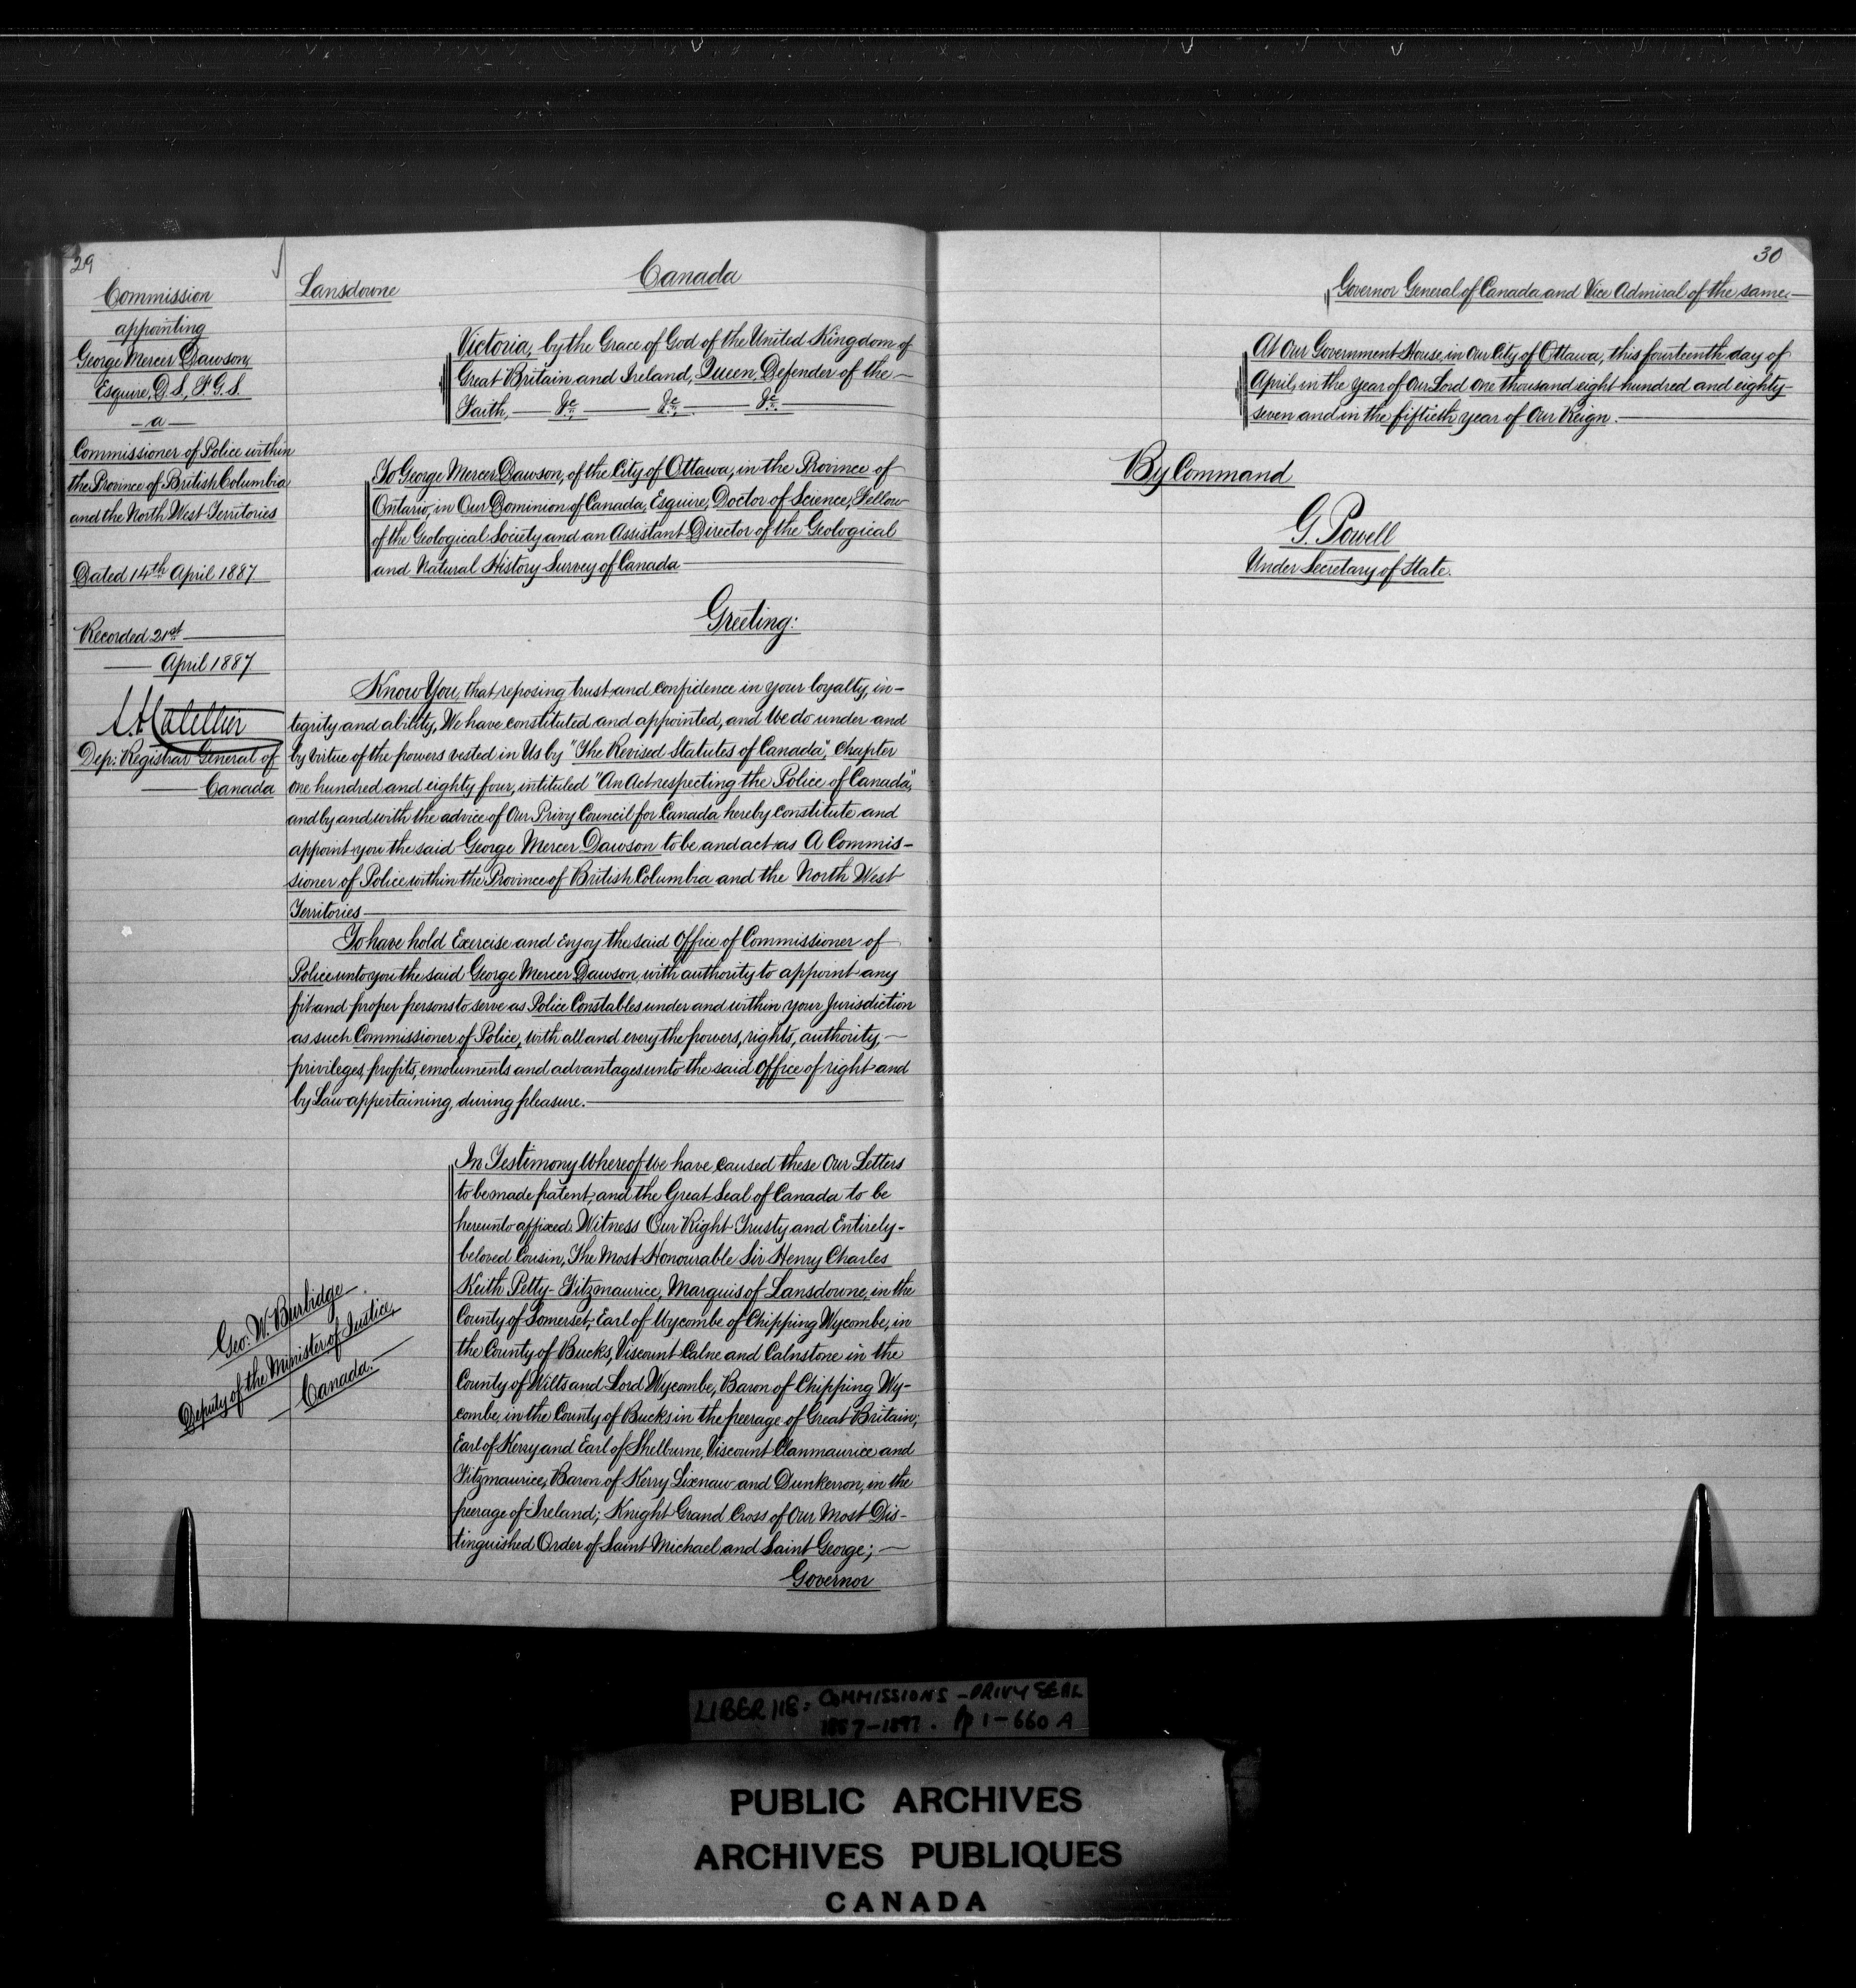 29
Commission
appointing
George Mercer Dawson,
Esquire, D.S., F.G.S.
— a —
Commissioner of Police within
the Province of British Columbia
and the North West Territories
Dated 14th April 1887
Recorded 21st
April 1887
Dep: Registrar General of
Canada
Lansdowne
Canada
Victoria, by the Grace of God of the United Kingdom of
Great Britain and Ireland, Queen, Defender of the —
Faith, — &c — &c — &c —
To George Mercer Dawson, of the City of Ottawa, in the Province of
Ontario, in Our Dominion of Canada, Esquire, Doctor of Science, Fellow
of the Geological Society and an Assistant Director of the Geological
and Natural History Survey of Canada
Greeting:
Know You, that reposing trust and confidence in your loyalty, in-
tegrity and ability, We have constituted and appointed, and We do under and
by virtue of the powers vested in Us by "The Revised Statutes of Canada", Chapter
one hundred and eighty four, intituled "An Act respecting the Police of Canada",
and by and with the advice of Our Privy Council for Canada hereby constitute and
appoint you the said George Mercer Dawson to be and act as A Commis-
sioner of Police within the Province of British Columbia and the North West
Territories
To have hold Exercise and Enjoy the said Office of Commissioner of
Police unto you the said George Mercer Dawson, with authority to appoint any
fit and proper persons to serve as Police Constables under and within your Jurisdiction
as such Commissioner of Police, with all and every the powers, rights, authority, —
privileges, profits, emoluments and advantages unto the said Office of right and
by Law appertaining, during pleasure.
In Testimony Whereof We have caused these Our Letters
to be made patent, and the Great Seal of Canada to be
hereunto affixed. Witness Our Right Trusty and Entirely-
beloved Cousin, The Most Honourable Sir Henry Charles
Keith Petty-Fitzmaurice, Marquis of Lansdowne, in the
County of Somerset, Earl of Wycombe of Chipping Wycombe, in
the County of Bucks, Viscount Calne and Calnstone in the
County of Wilts and Lord Wycombe, Baron of Chipping Wy-
combe, in the County of Bucks in the peerage of Great Britain;
Earl of Kerry and Earl of Shelburne, Viscount Clanmaurice and
Fitzmaurice, Baron of Kerry Lixnaw and Dunkerron, in the
peerage of Ireland; Knight Grand Cross of Our Most Dis-
tinguished Order of Saint Michael and Saint George; —
Governor
Geo: W. Burbidge
Deputy of the Minister of Justice,
Canada.
30
Governor General of Canada and Vice Admiral of the same. —
At Our Government House, in Our City of Ottawa, this fourteenth day of
April, in the year of Our Lord one thousand eight hundred and eighty
seven and in the fiftieth year of Our Reign.
By Command
G. Powell
Under Secretary of State.
LIBER 118: COMMISSIONS - PRIVY SEAL
1887-1897. pp 1-660 A
PUBLIC ARCHIVES
ARCHIVES PUBLIQUES
CANADA